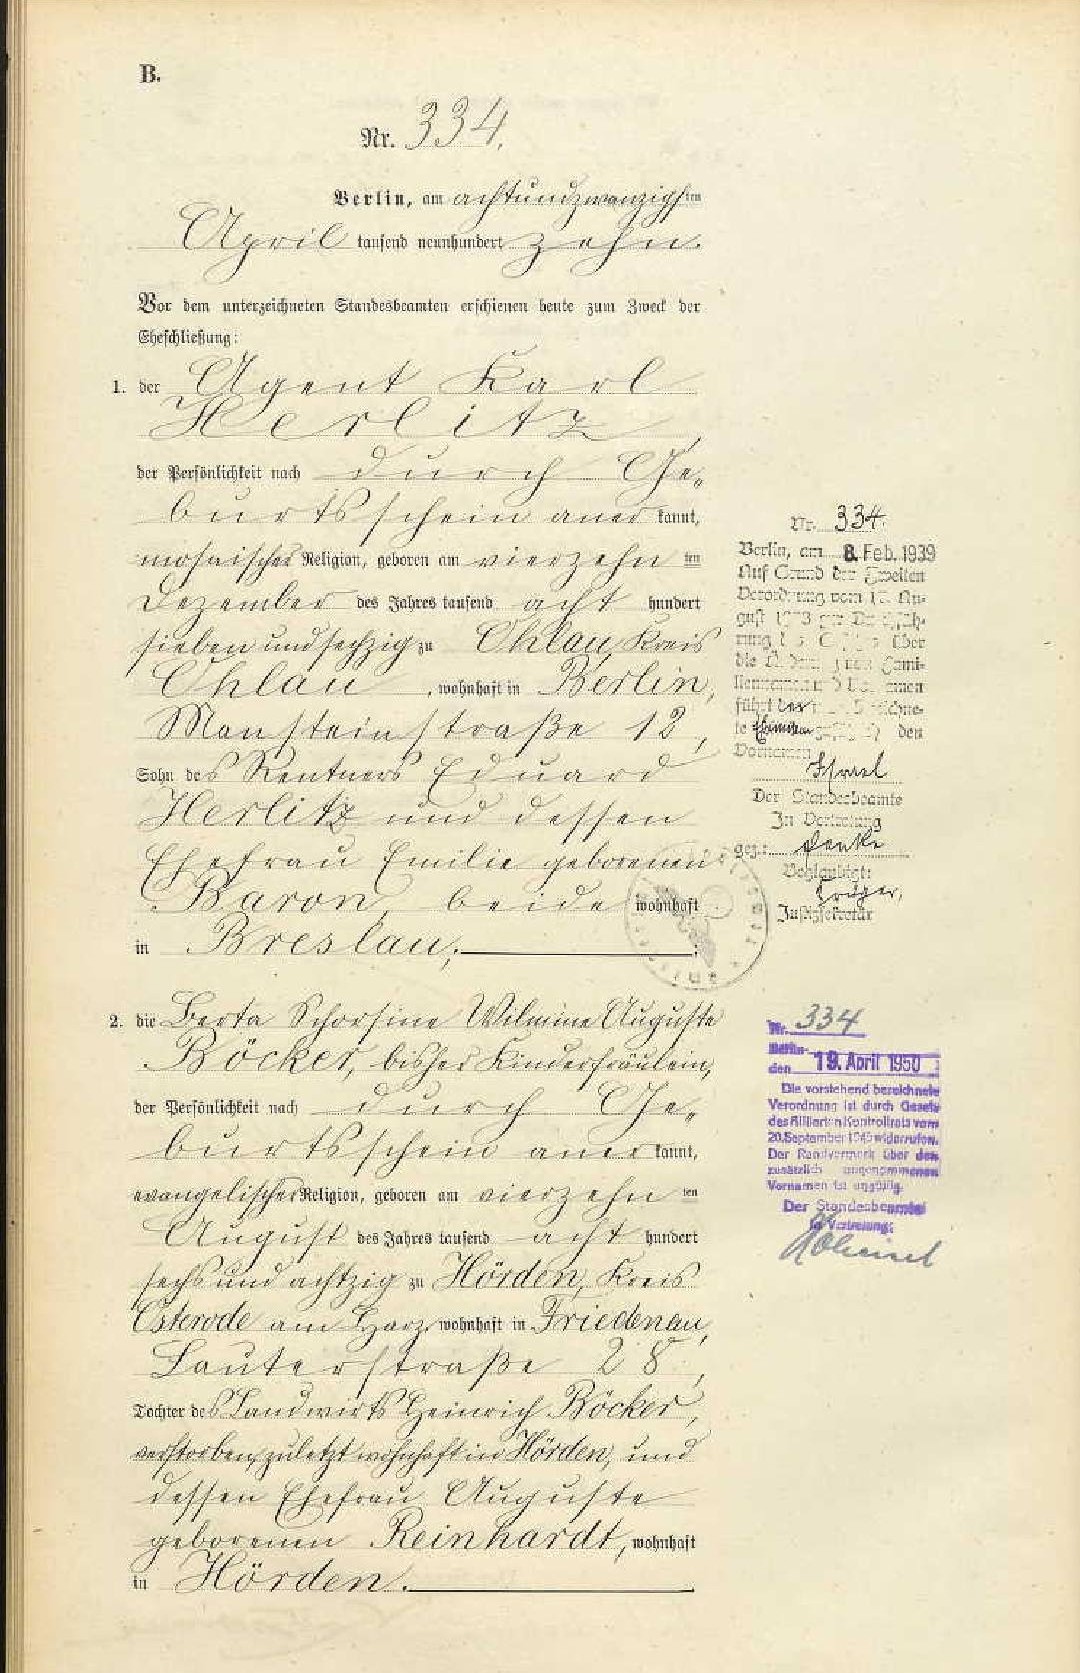 B.
Nr. 334.
Berlin, am achtundzwanzigsten
April tausend neunhundert zehn.
Vor dem unterzeichneten Standesbeamten erschienen heute zum Zweck der
Eheschließung:
1. der Agent Karl
Herlitz,
der Persönlichkeit nach durch Ge-
burtsschein anerkannt,
mosaischer Religion, geboren am vierzehn ten
Dezember des Jahres tausend acht hundert
siebenundsechzig zu Ohlau, Kreis
Ohlau, wohnhaft in Berlin,
Mansteinstraße 12,
Sohn des Rentners Eduard
Herlitz und dessen
Ehefrau Emilie geborenen
Baron, beide wohnhaft
in Breslau;
2. die Berta Schorsine Wilmine Auguste
Böcker, bisher Kinderfräulein,
der Persönlichkeit nach durch Ge-
burtsschein anerkannt,
evangelischer Religion, geboren am vierzehn ten
August des Jahres tausend acht hundert
sechsundachtzig zu Hörden, Kreis
Osterode am Harz, wohnhaft in Friedenau,
Lauterstraße 28,
Tochter des Landwirts Heinrich Böcker,
verstorben, zuletzt wohnhaft in Hörden, und
dessen Ehefrau Auguste
geborenen Reinhardt, wohnhaft
in Hörden.
Nr. 334.
Berlin, am 8. Feb. 1939
Auf Grund der Zweiten
Verordnung vom 17. Au-
gust 1938 zur Durchfüh-
rung des Gesetzes über
die Änderung von Fami-
liennamen und Vornamen
führt der
te Ehemann den
Vornamen
Israel
Der Standesbeamte
In Vertretung
gez.:
Beglaubigt:
Krüger,
Justizsekretär
Nr. 334
Berlin
den 19. April 1950
Die vorstehend bezeichnete
Verordnung ist durch Gesetz
des Alliierten Kontrollrats vom
20. September 1945 widerrufen.
Der Randvermerk über den
zusätzlich angenommenen
Vornamen ist ungültig.
Der Standesbeamte
In Vertretung: